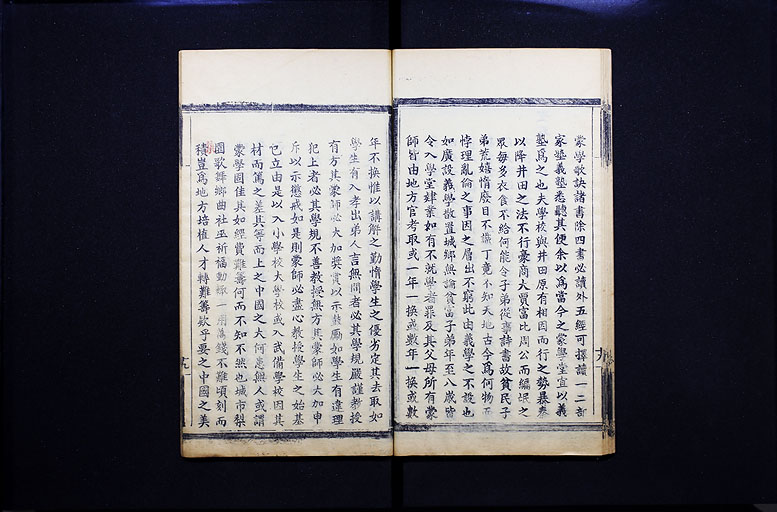 蒙學歌訣諸書除四書必讀外五經可擇讀一二部
家塾義塾悉聽其便余以爲當今之蒙學堂宜以義
塾爲之也夫學校與井田原有相因而行之勢暴秦
以降井田之法不行豪商大賈富比周公而編氓之
眾每多衣食不給何能令子弟從事詩書故貧民子
弟荒嬉惰廢目不識丁竟不知天地古今爲何物而
悖理亂倫之事因之層出不窮此由義學之不設也
如廣設義學散置城鄉無論貧富子弟年至八歲皆
令入學堂肄業如有不就學者罪及其父母所有蒙
師皆由地方官考取或一年一換或數年一換或數
年不換惟以講解之勤惰學生之優劣定其去取如
學生有入孝出弟人言無間者必其學規嚴謹教授
有方其蒙師必大加獎賞以示鼓勵如學生有違理
犯上者必其學規不善教授無方其蒙師必大加申
斥以示懲戒如是則蒙師必盡心教授學生之始基
已立由是以入小學校大學校或入武備學校因其
材而篤之差其等而上之中國之大何患無人或謂
蒙學固佳其如經費難籌何而不知不然也城市梨
園歌舞鄉曲社巫祈福動輒一用萬錢不難頃刻而
積豈爲地方培植人才轉難籌欸乎要之中國之美